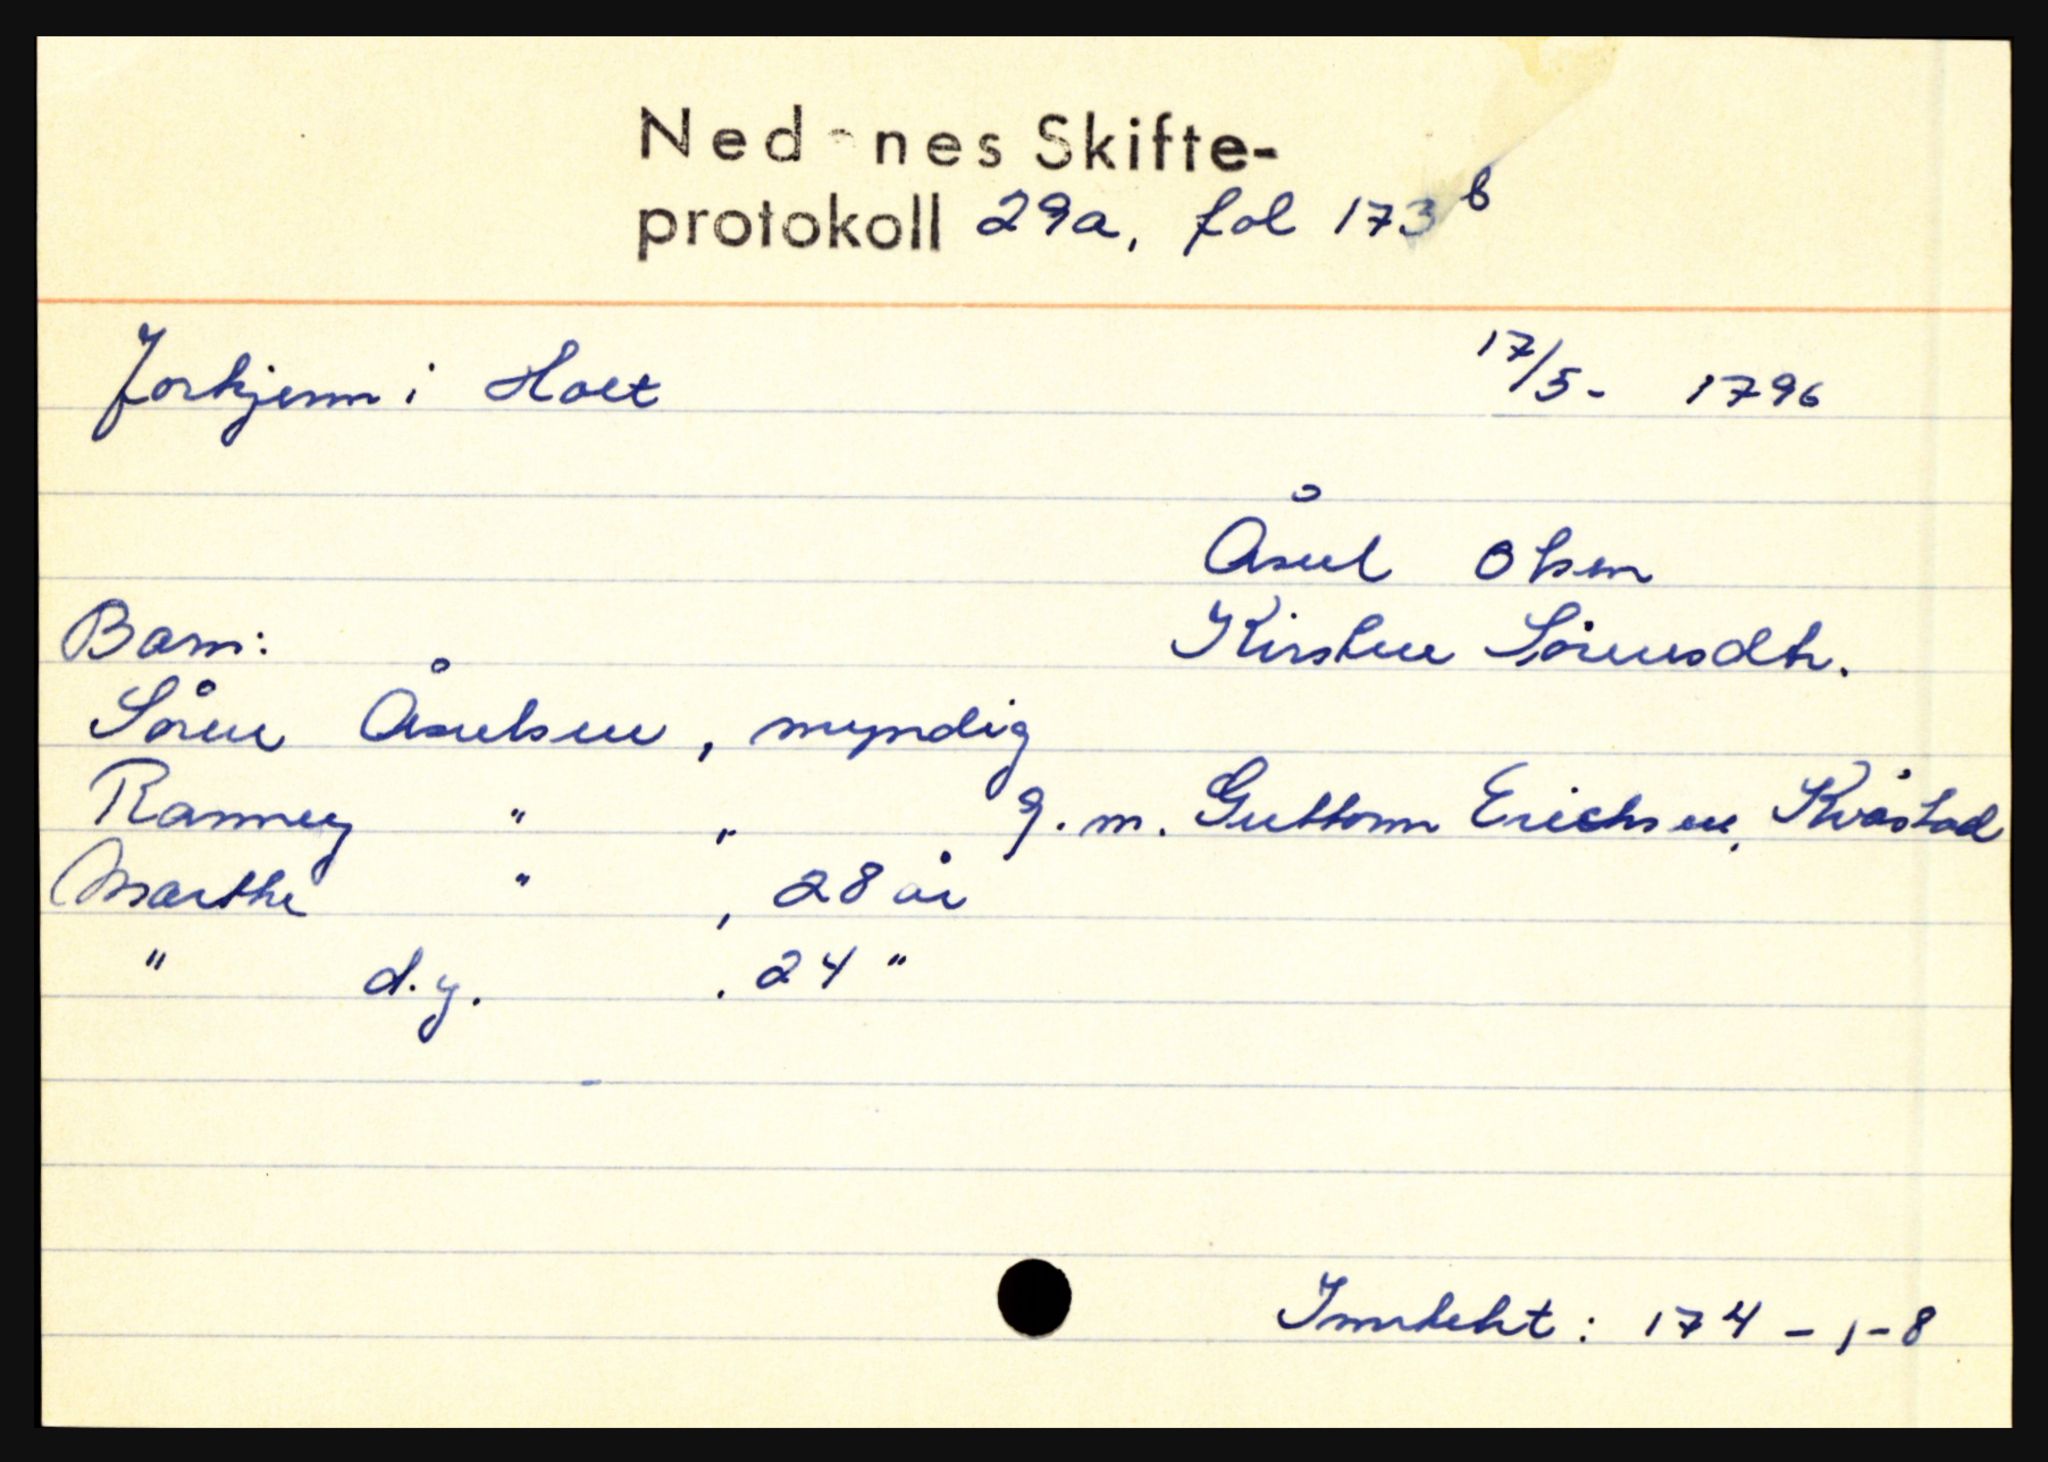 Nedenes Skifte-
protokoll 29a, fol 173 b
Torkjenn i Holt 17/5- 1796
Åsul Olsen
Barn: Kirsten Sörensdtr.
Sören Åsulsen, myndig
Ranney " , g.m. Guttorm Erichsen, Kvåstad
Marthe " , 28 år
" d.y. , 24 "
Inntekt: 174-1-8